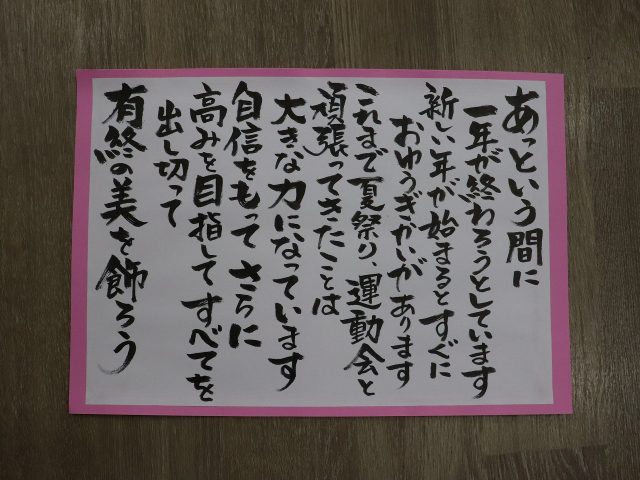 あっという間に
一年が終わろうとしています
新しい年が始まるとすぐに
おゆうぎかいがあります
これまで夏祭り、運動会と
頑張ってきたことは
大きな力になっています
自信をもってさらに
高みを目指してすべてを
出し切って
有終の美を飾ろう